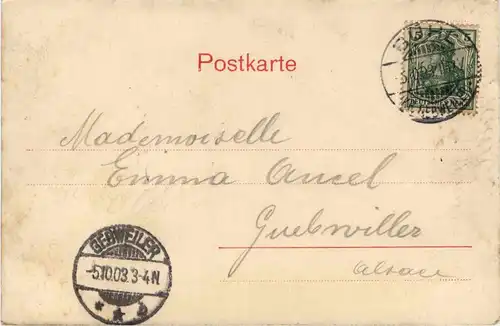 Postkarte
5
Mademoiselle
Emma Ancel
Guebwiller
Alsace
GEBWEILER
-5.10.03.3-4N